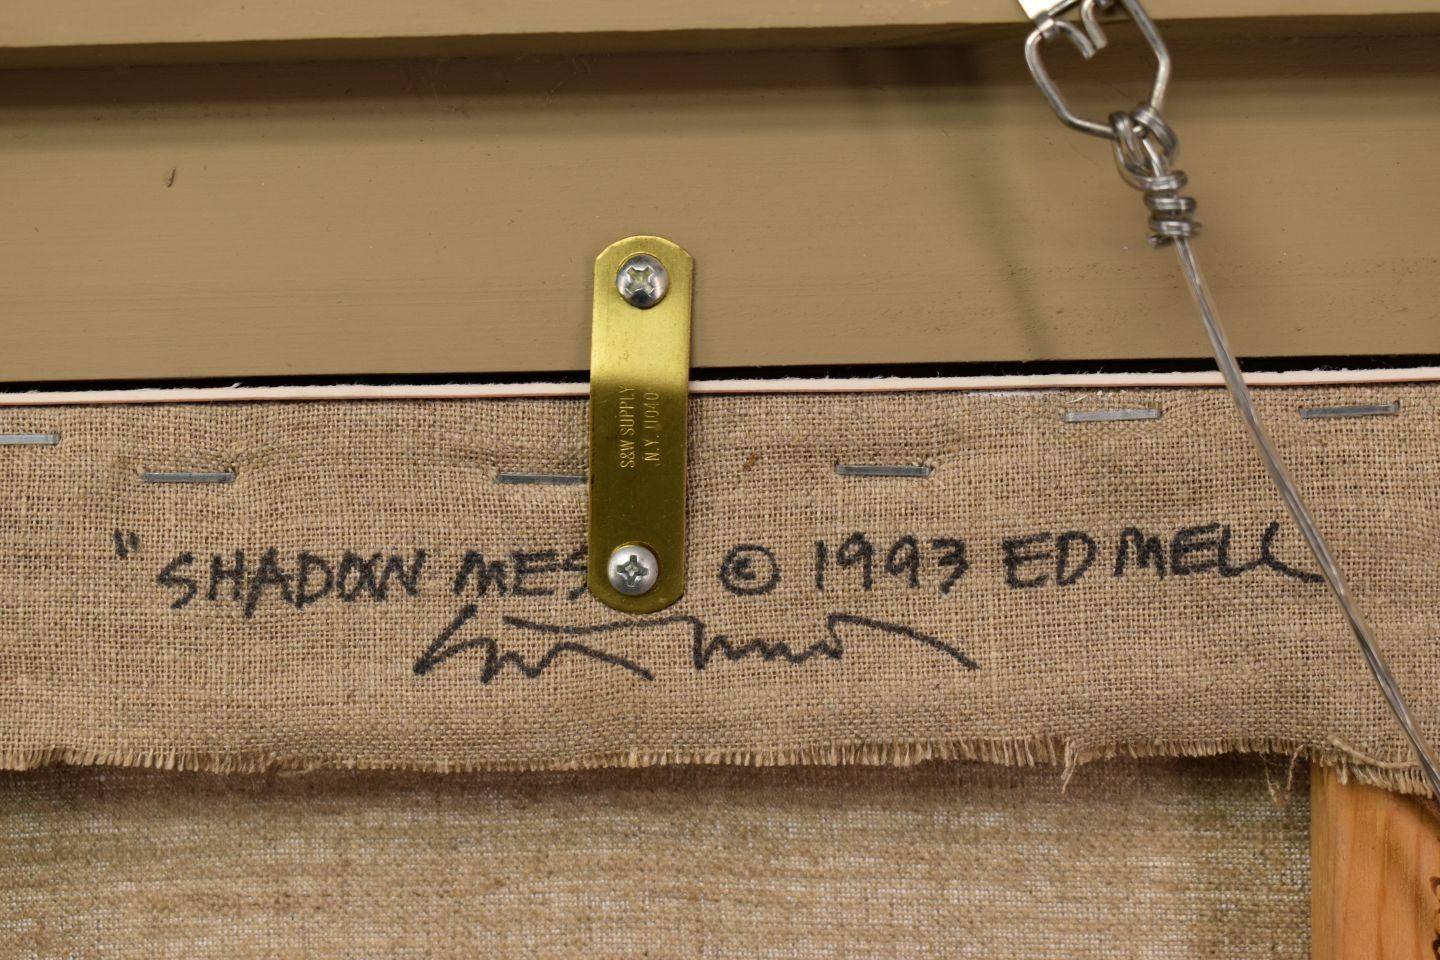 S&W SUPPLY
N.Y. 11040
"SHADOW MES © 1993 ED MELL